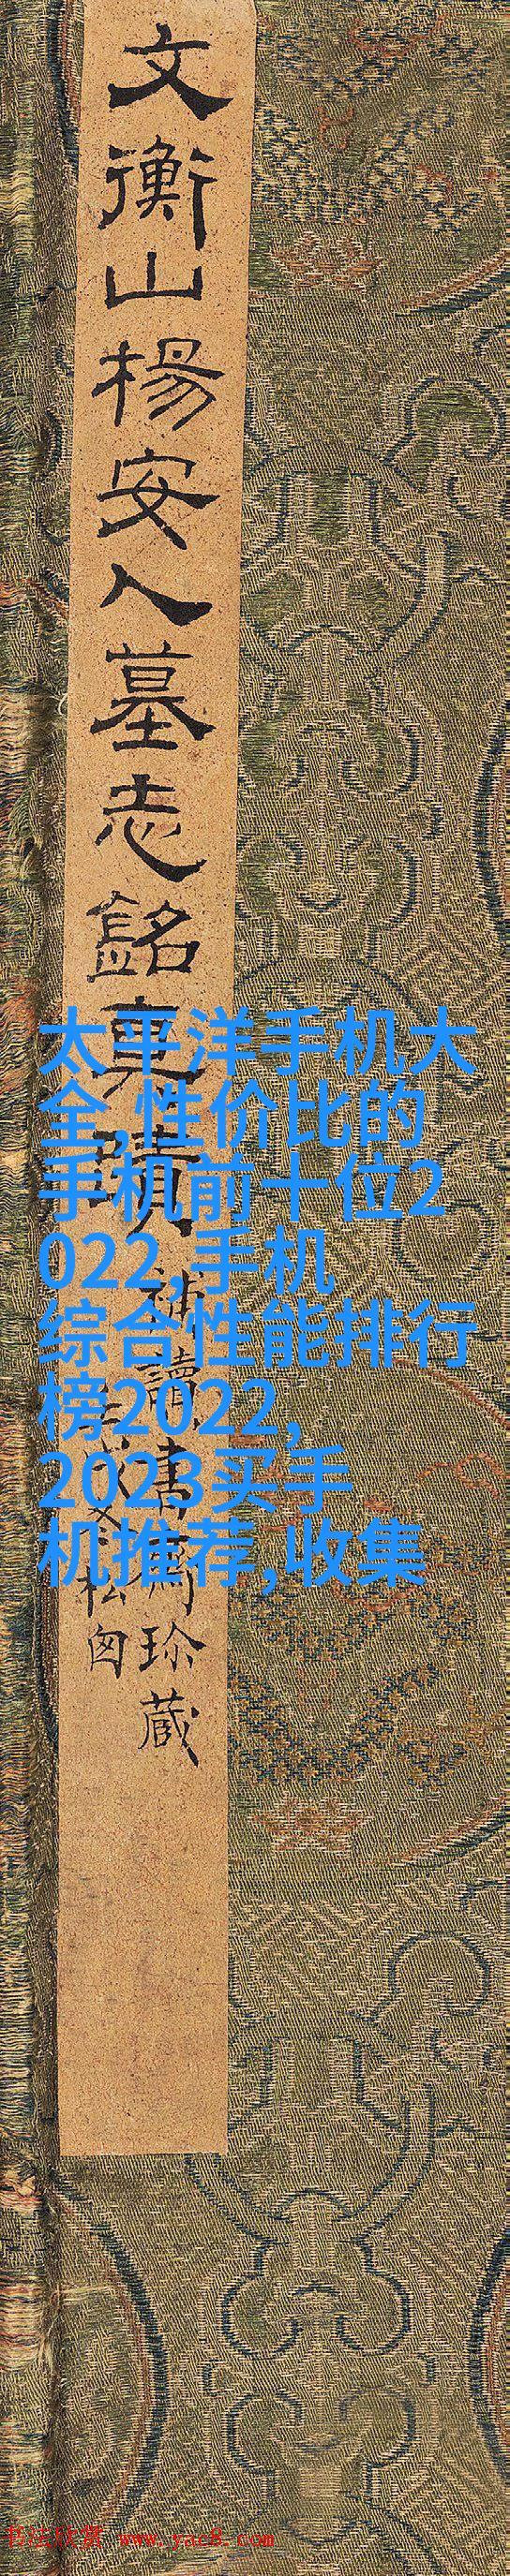 文衡山楊安人墓志銘真蹟
補讀書齋珍藏
松匋
太平洋手机大
全,性价比的
手机前十位2
022,手机
综合性能排行
榜2022,
2023买手
机推荐,收集
书法欣赏 www.yac8.com